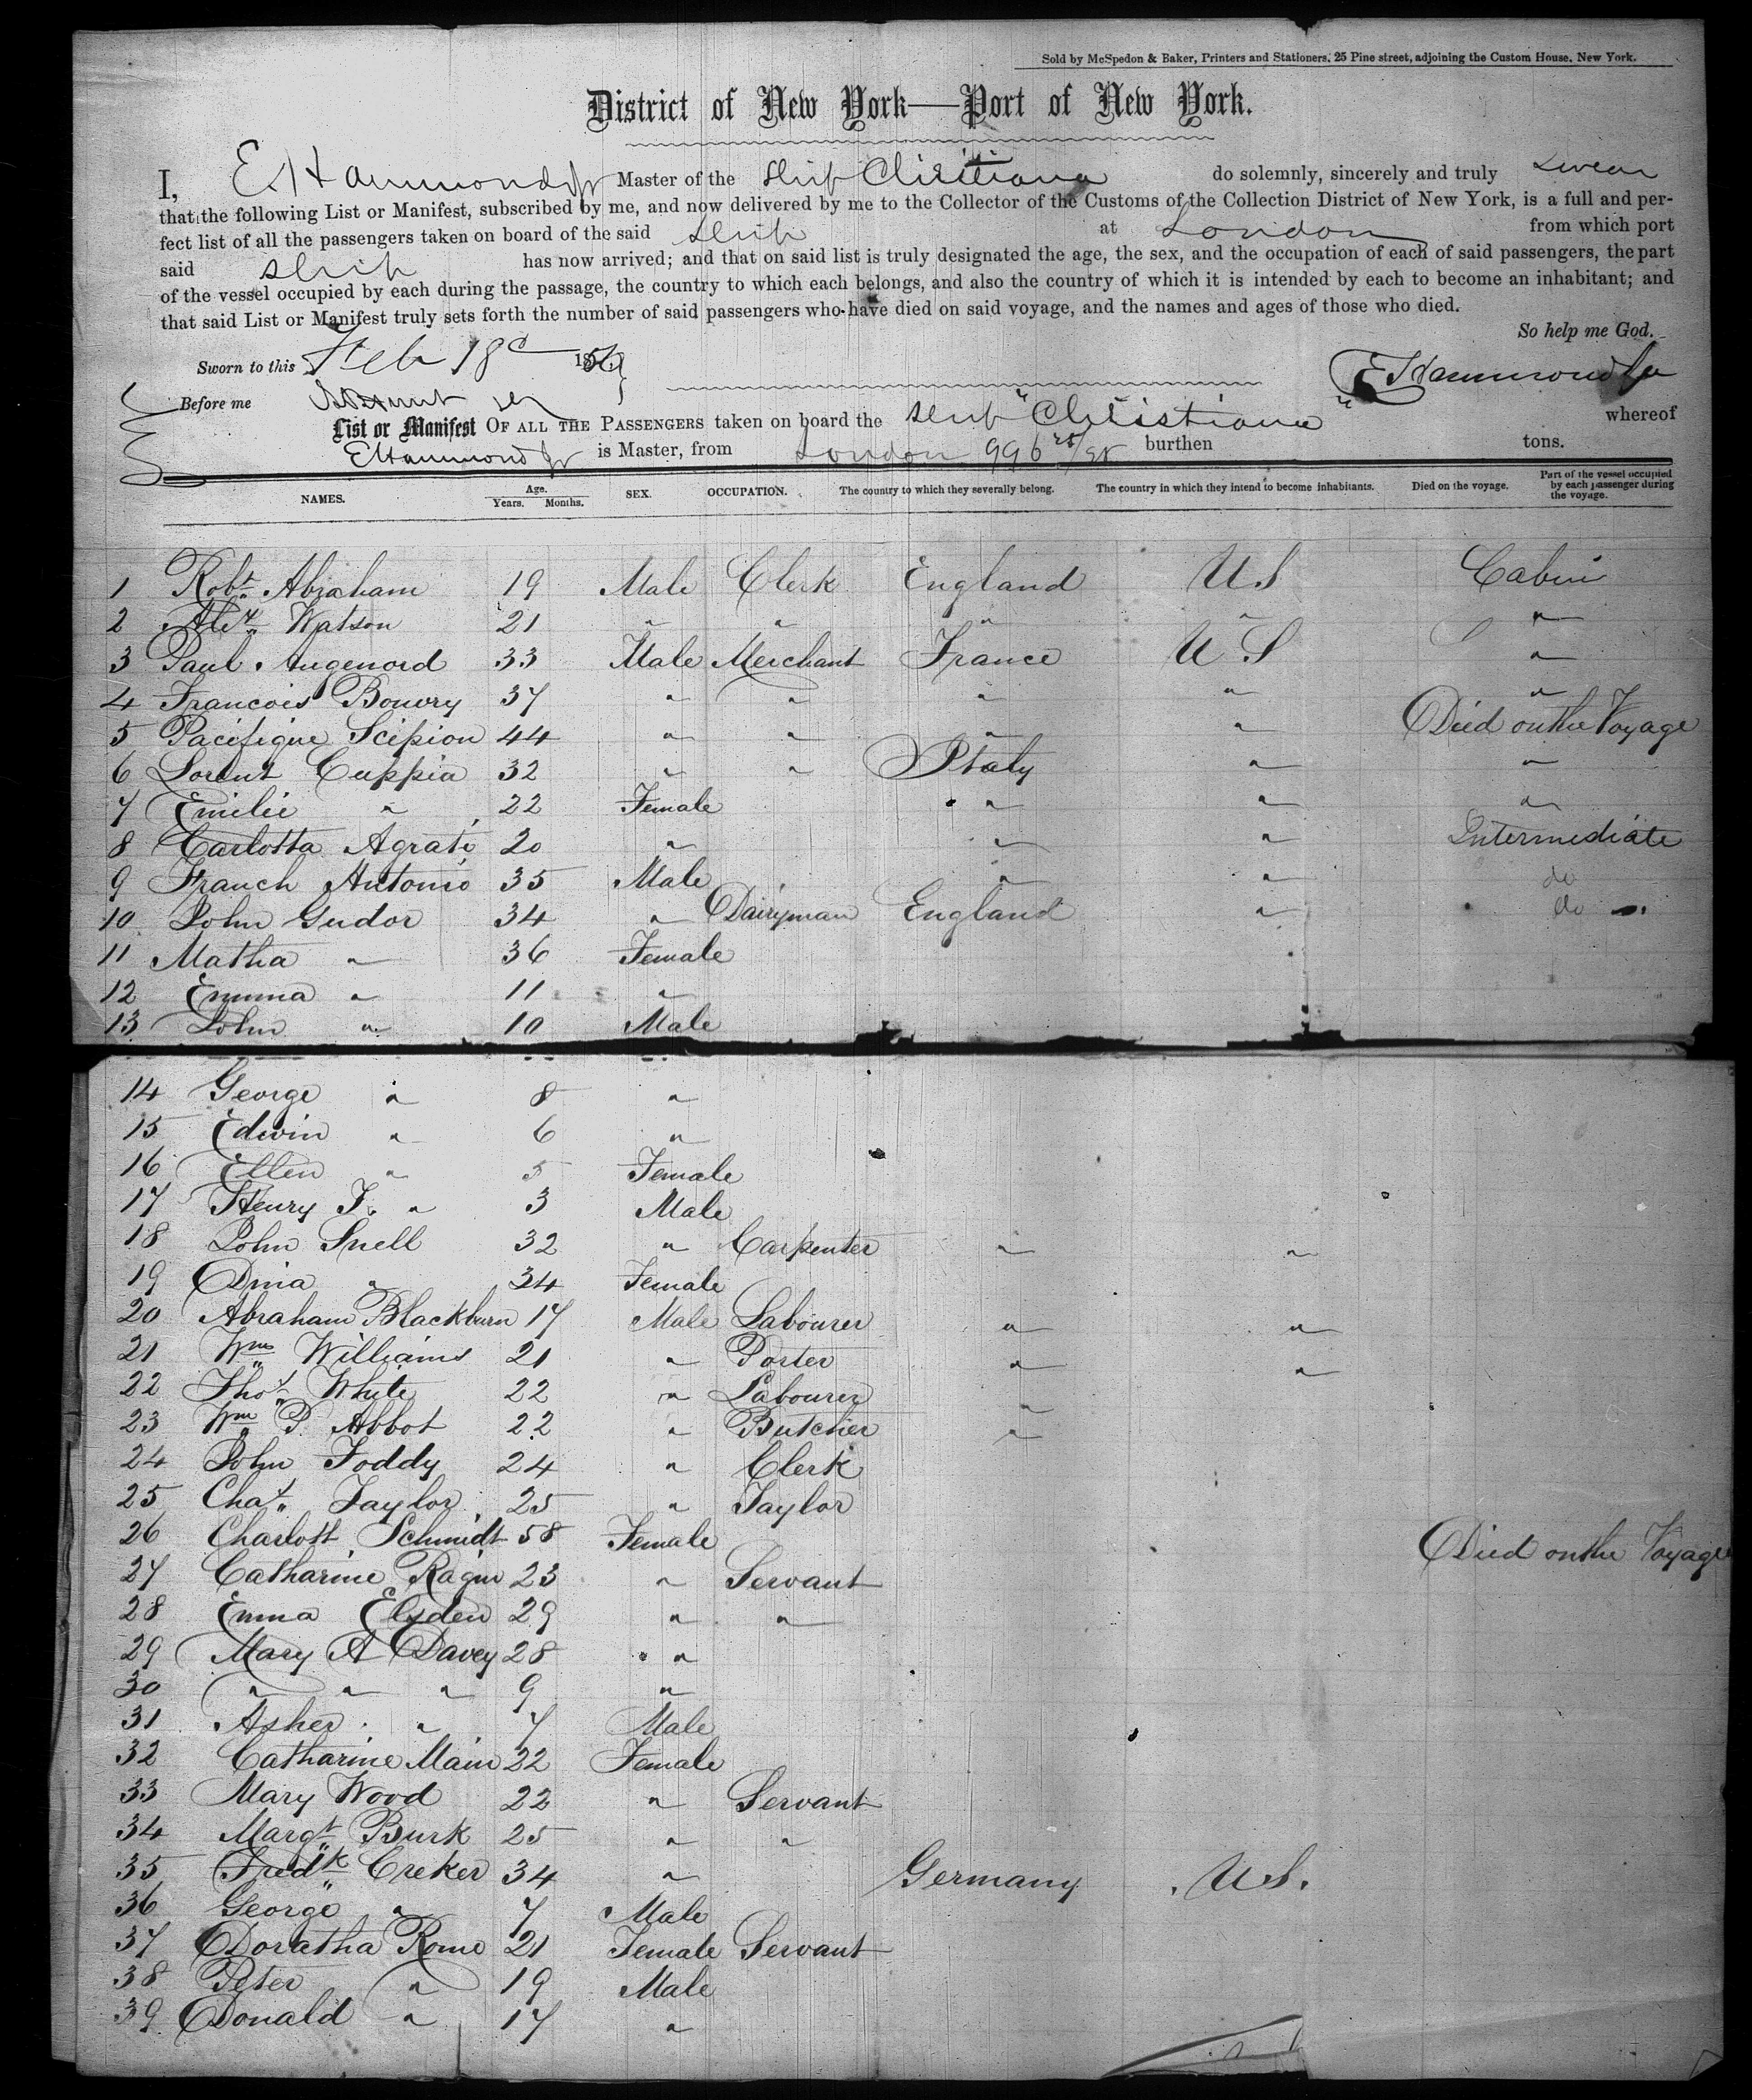 Sold by McSpedon & Baker, Printers and Stationers, 25 Pine street, adjoining the Custom House, New York.
District of New York—Port of New York.
I, E. Hammond Jr Master of the Ship Christiana do solemnly, sincerely and truly swear
that the following List or Manifest, subscribed by me, and now delivered by me to the Collector of the Customs of the Collection District of New York, is a full and per-
fect list of all the passengers taken on board of the said Ship at London from which port
said Ship has now arrived; and that on said list is truly designated the age, the sex, and the occupation of each of said passengers, the part
of the vessel occupied by each during the passage, the country to which each belongs, and also the country of which it is intended by each to become an inhabitant; and
that said List or Manifest truly sets forth the number of said passengers who have died on said voyage, and the names and ages of those who died.
So help me God.
Sworn to this Feb 18 1859
E Hammond Jr
Before me
List or Manifest OF ALL THE PASSENGERS taken on board the Ship "Christiana" whereof
E Hammond Jr is Master, from London 996 burthen tons.
NAMES. Age. Years. Months. SEX. OCCUPATION. The country to which they severally belong. The country in which they intend to become inhabitants. Died on the voyage. Part of the vessel occupied by each passenger during the voyage.
1 Robt. Abraham 19 Male Clerk England U.S Cabin
2 Alex. Watson 21 " " " " "
3 Paul Augenord 33 Male Merchant France U S "
4 Francois Bowry 37 " " " " "
5 Pacifique Scipion 44 " " " " Died on the Voyage
6 Lorent Cuppia 32 " " Italy " "
7 Emilie " 22 Female " " "
8 Carlotta Agrati 20 " " " Intermediate
9 Franch Antonio 35 Male " " do
10 John Gudor 34 " Dairyman England " do
11 Matha " 36 Female
12 Emma " 11 "
13 John " 10 Male
14 George " 8 "
15 Edwin " 6 "
16 Ellen " 5 Female
17 Henry J. " 3 Male
18 John Snell 32 " Carpenter " "
19 Dina " 34 Female
20 Abraham Blackburn 17 Male Labourer " "
21 Wm. Williams 21 " Porter " "
22 Thos. White 22 " Labourer "
23 Wm. P. Abbot 22 " Butcher "
24 John Foddy 24 " Clerk
25 Chas. Taylor 25 " Taylor
26 Charlott Schmidt 58 Female Died on the Voyage
27 Catharine Ragin 23 " Servant
28 Emma Elsden 29 " "
29 Mary A Davey 28 "
30 " " " 9 "
31 Asher " 7 Male
32 Catharine Main 22 Female
33 Mary Wood 22 " Servant
34 Margt. Burk 25 " "
35 Fredk. Creker 34 " Germany U.S.
36 George " 7 Male
37 Doratha Rome 21 Female Servant
38 Peter " 19 Male
39 Donald " 17 "